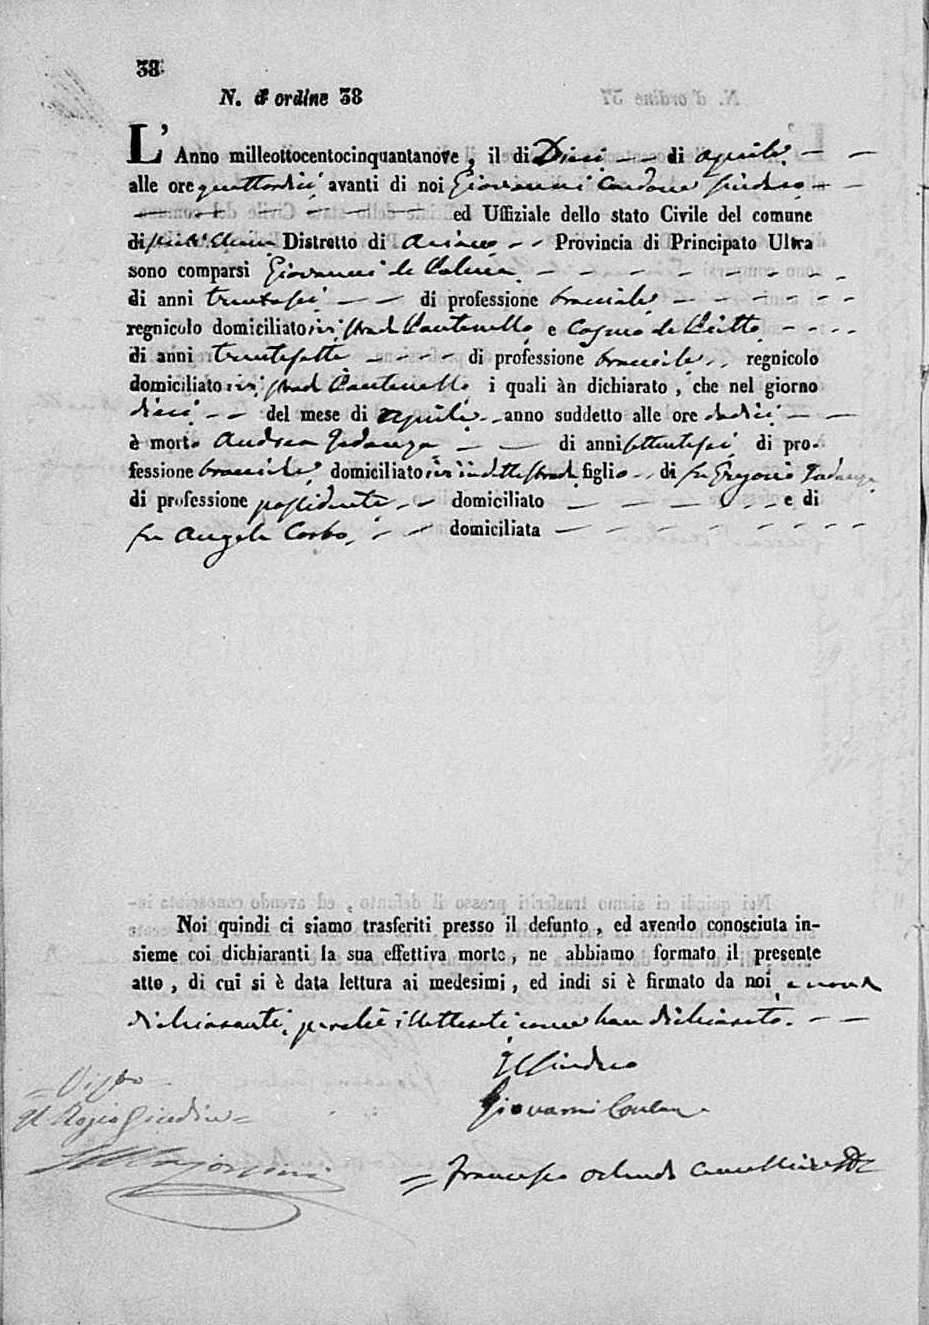 38
N. d'ordine 38
L'Anno milleottocentocinquantanove, il di Dieci — — di aprile — —
alle ore quattordici avanti di noi Giovanni Cardone Sindaco — —
— — — — — — ed Uffiziale dello stato Civile del comune
di Distretto di Ariano — — Provincia di Principato Ultra
sono comparsi Giovanni de — — — — — — —
di anni trentasei — — di professione bracciale — — — — — —
regnicolo domiciliato ivi strada e Cosmo de — — — —
di anni trentasette — — — — di professione bracciale — — regnicolo
domiciliato ivi strada i quali àn dichiarato, che nel giorno
dieci — — del mese di aprile — anno suddetto alle ore dodici — —
è morto Andrea — — di anni settantasei di pro-
fessione bracciale domiciliato ivi in detta strada figlio — di fu Gregorio
di professione possidente — — domiciliato — — — — — — e di
fu Angela Corbo, — — domiciliata — — — — — — — — —
Noi quindi ci siamo trasferiti presso il defunto, ed avendo conosciuta in-
sieme coi dichiaranti la sua effettiva morte, ne abbiamo formato il presente
atto, di cui si è data lettura ai medesimi, ed indi si è firmato da noi, e non da
dichiaranti, perchè illetterati come han dichiarato. — —
Il Sindaco
Giovanni Cardone
Visto
Il Regio Giudice
Francesco Orlando Cancelliere